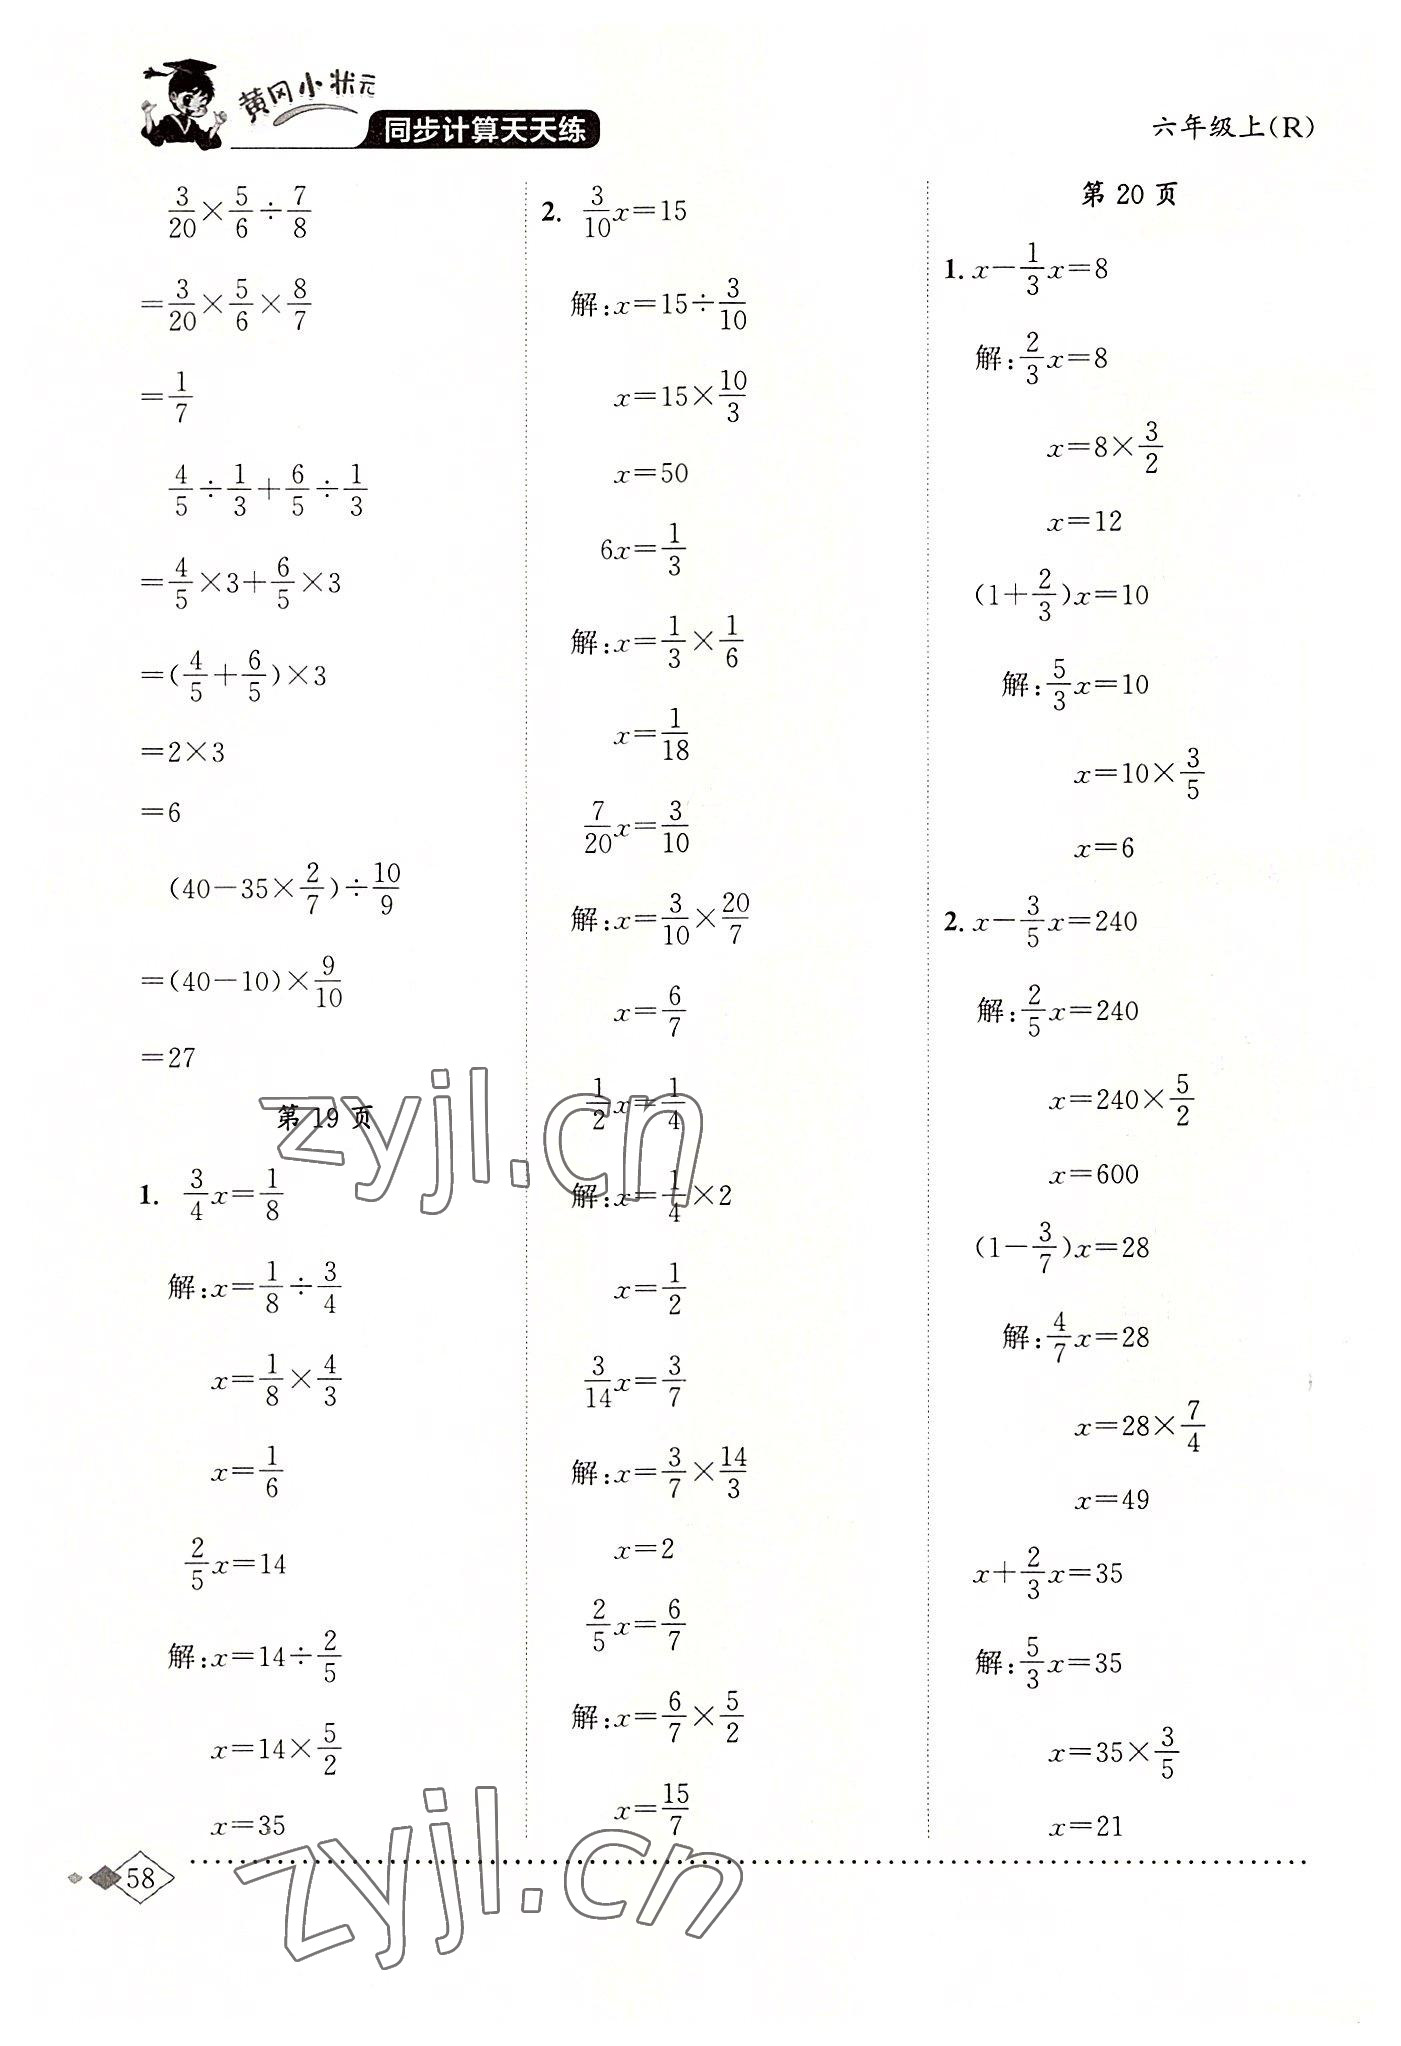 黄冈小状元
同步计算天天练
六年级上(R)
3/20×5/6÷7/8
=3/20×5/6×8/7
=1/7
4/5÷1/3+6/5÷1/3
=4/5×3+6/5×3
=(4/5+6/5)×3
=2×3
=6
(40-35×2/7)÷10/9
=(40-10)×9/10
=27
第 19 页
1. 3/4x=1/8
解:x=1/8÷3/4
x=1/8×4/3
x=1/6
2/5x=14
解:x=14÷2/5
x=14×5/2
x=35
2. 3/10x=15
解:x=15÷3/10
x=15×10/3
x=50
6x=1/3
解:x=1/3×1/6
x=1/18
7/20x=3/10
解:x=3/10×20/7
x=6/7
1/2x=1/4
解:x=1/4×2
x=1/2
3/14x=3/7
解:x=3/7×14/3
x=2
2/5x=6/7
解:x=6/7×5/2
x=15/7
第 20 页
1. x-1/3x=8
解:2/3x=8
x=8×3/2
x=12
(1+2/3)x=10
解:5/3x=10
x=10×3/5
x=6
2. x-3/5x=240
解:2/5x=240
x=240×5/2
x=600
(1-3/7)x=28
解:4/7x=28
x=28×7/4
x=49
x+2/3x=35
解:5/3x=35
x=35×3/5
x=21
58
zyjl.cn
zyjl.cn